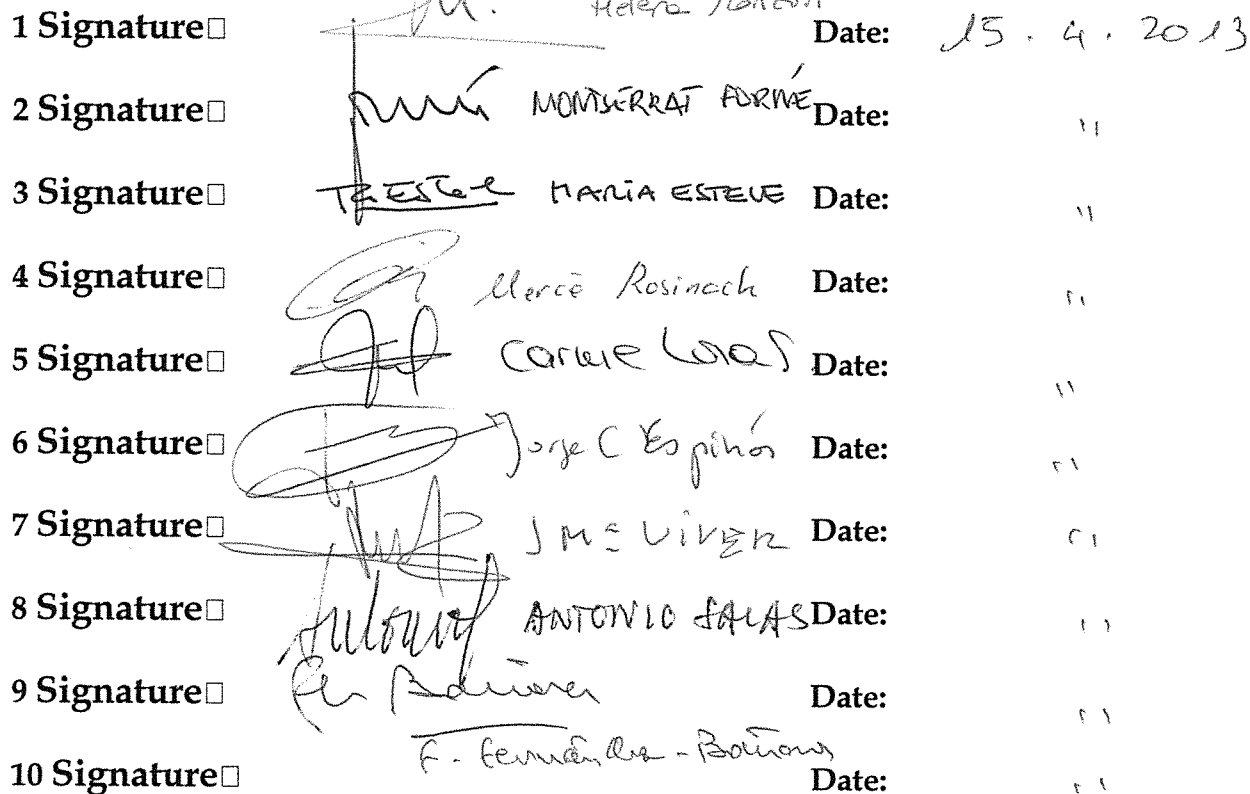 1 Signature Helena Date: 15 . 4 . 2013
2 Signature MONTSERRAT FORNÉ Date: "
3 Signature MARIA ESTEVE Date: "
4 Signature Mercè Rosinach Date: "
5 Signature Carme Loras Date: "
6 Signature Jorge C Espinós Date: "
7 Signature J Mª ViVER Date: "
8 Signature Antonio ANTONIO SALAS Date: "
9 Signature Date: "
F. Fernández-Bañares
10 Signature Date: "